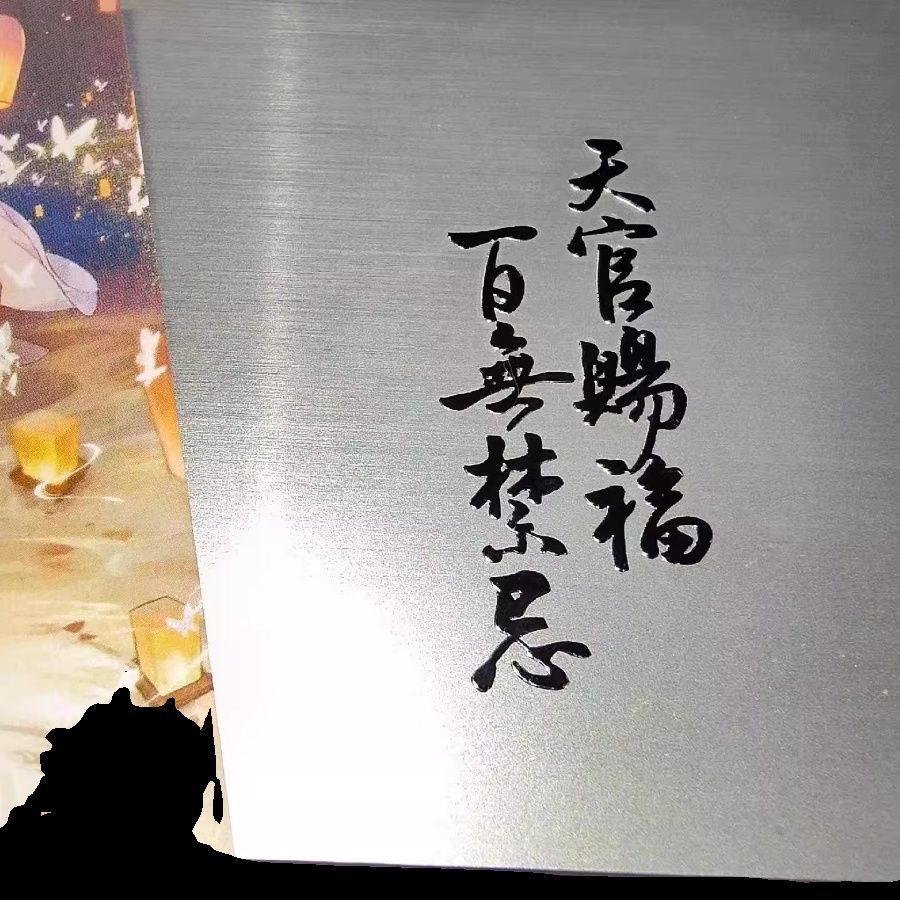 天官賜福
百無禁忌